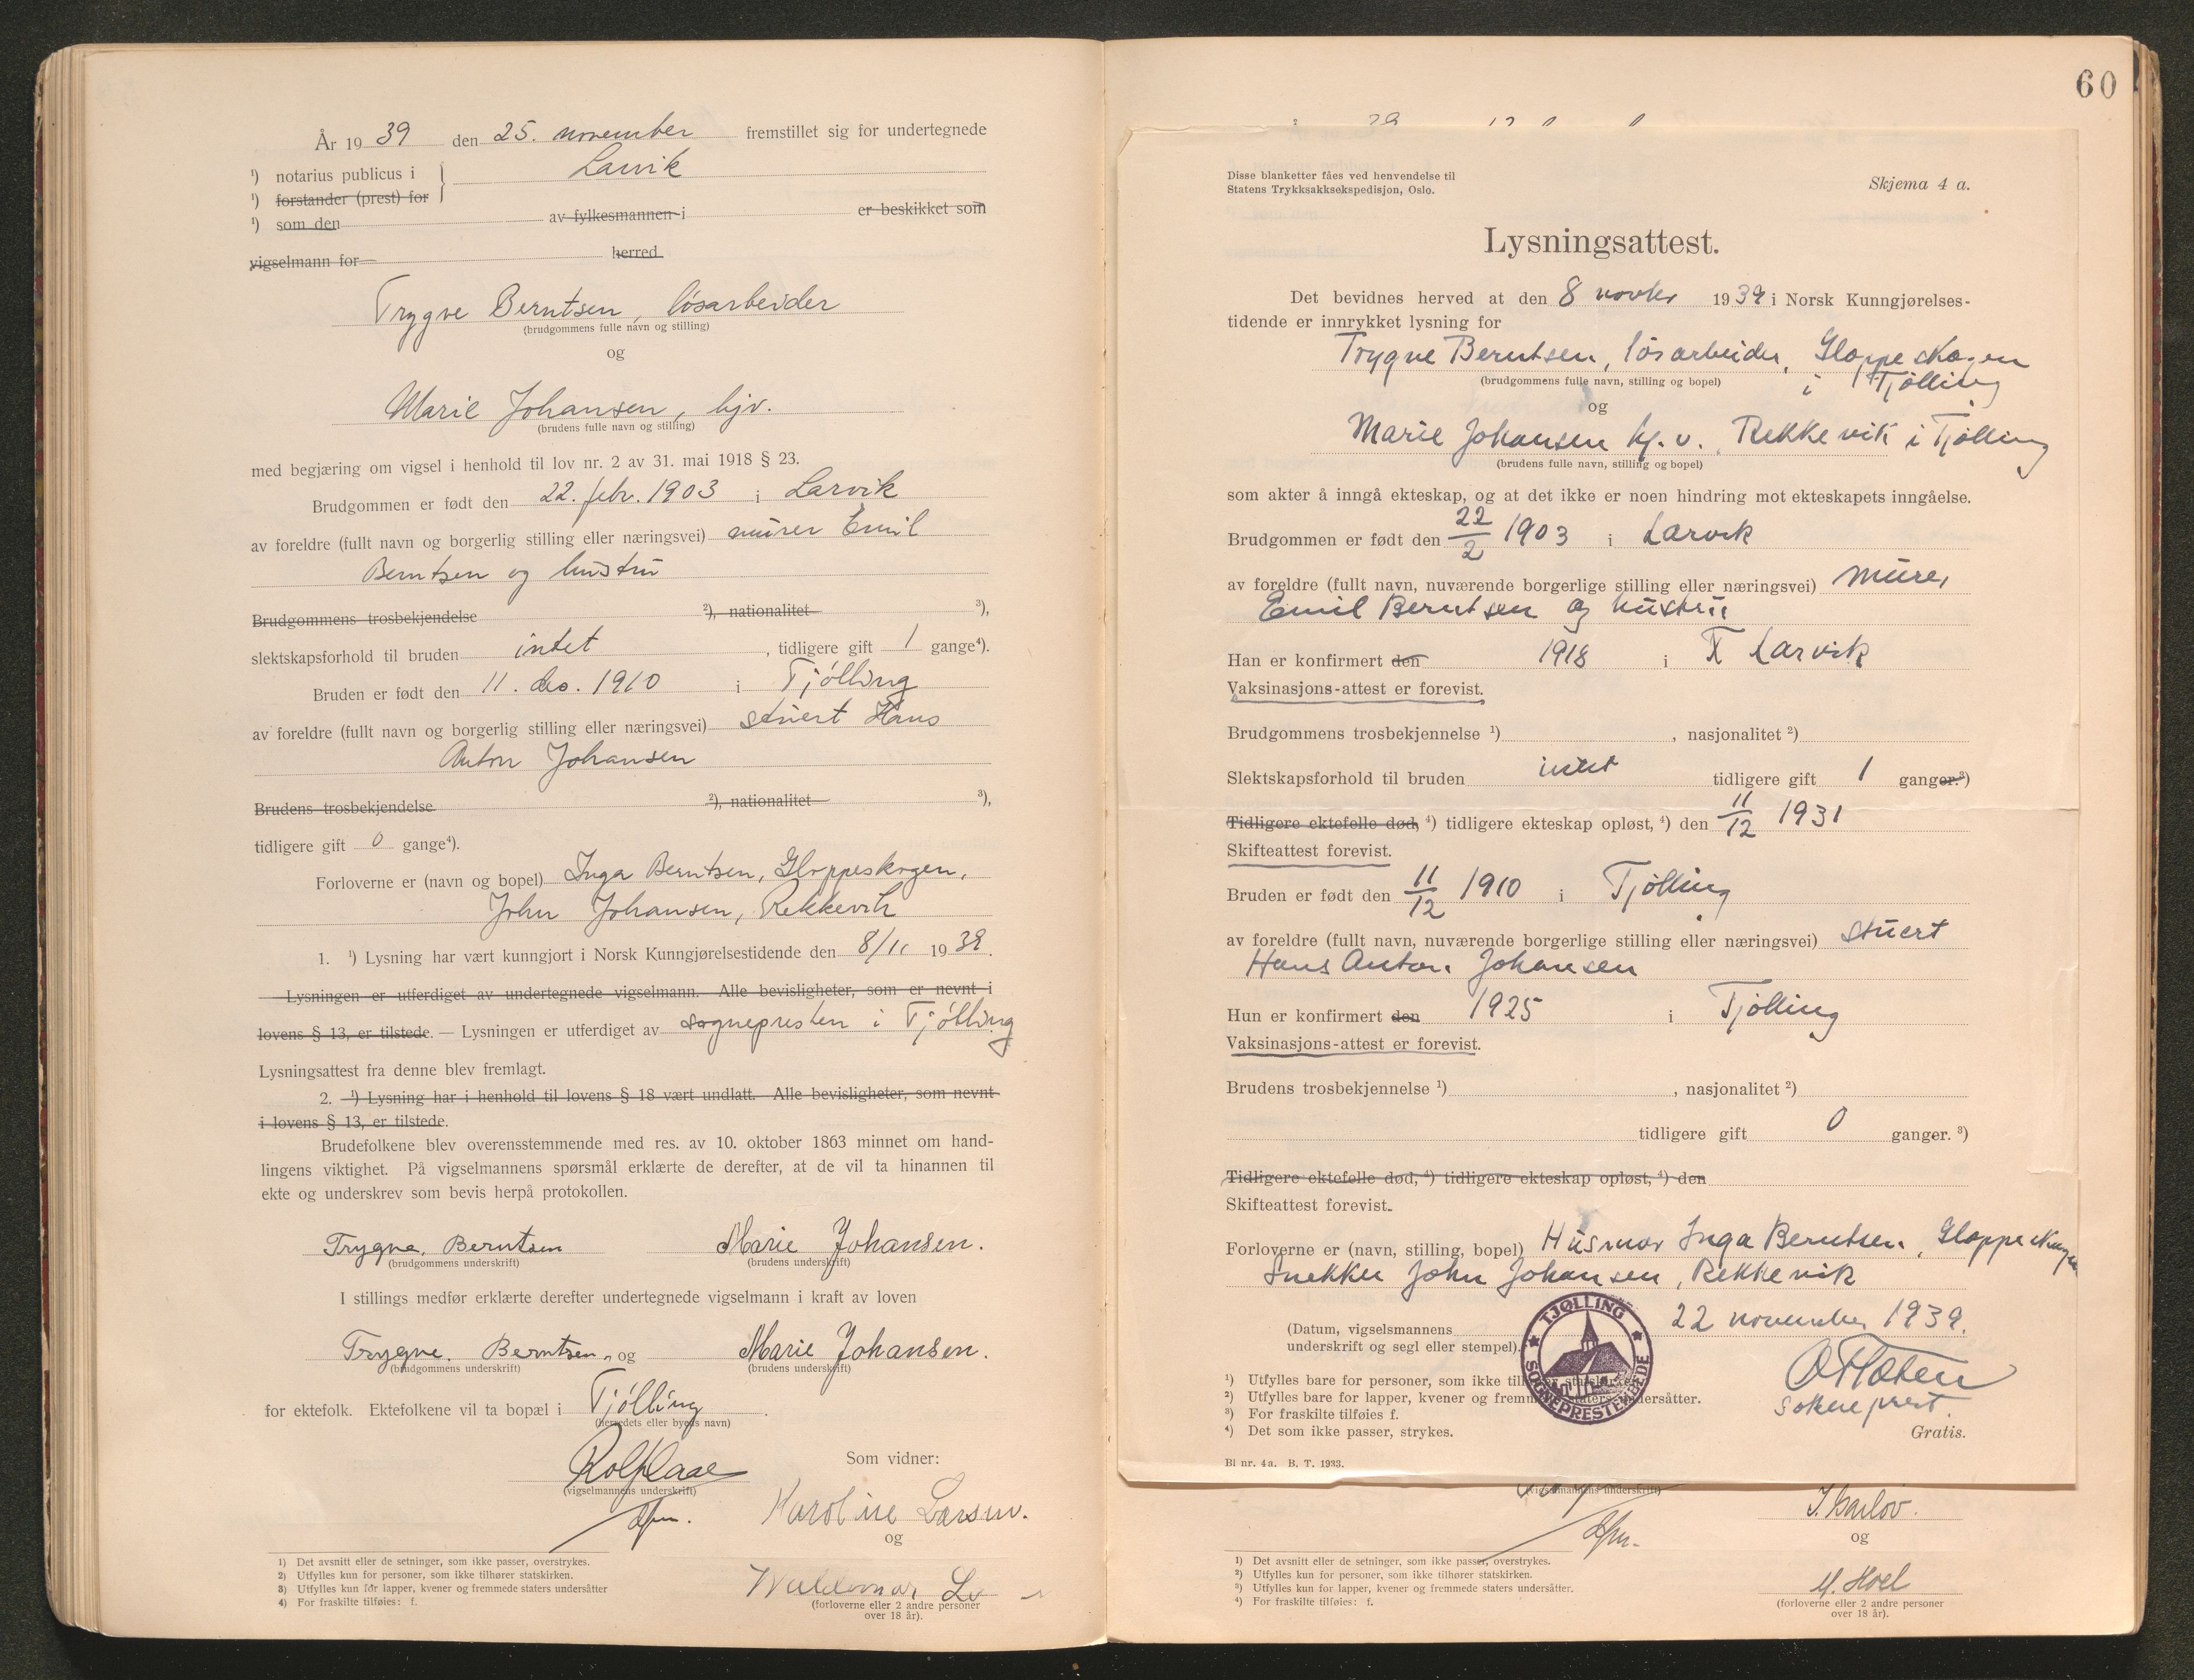 År 1939 den 25. november fremstillet sig for undertegnede
¹) notarius publicus i } Larvik
¹) forstander (prest) for
¹) som den av fylkesmannen i er beskikket som
vigselmann for herred
Trygve Berntsen, løsarbeider
(brudgommens fulle navn og stilling)
og
Marie Johansen, hjv.
(brudens fulle navn og stilling)
med begjæring om vigsel i henhold til lov nr. 2 av 31. mai 1918 § 23.
Brudgommen er født den 22. febr. 1903 i Larvik
av foreldre (fullt navn og borgerlig stilling eller næringsvei) murer Emil
Berntsen og hustru
Brudgommens trosbekjendelse ²), nationalitet ³),
slektskapsforhold til bruden intet, tidligere gift 1 gange⁴).
Bruden er født den 11. des. 1910 i Tjølling
av foreldre (fullt navn og borgerlig stilling eller næringsvei) stuert Hans
Anton Johansen
Brudens trosbekjendelse ²), nationalitet ³),
tidligere gift 0 gange⁴).
Forloverne er (navn og bopel) Inga Berntsen, Gloppeskogen,
John Johansen, Rekkevik
1. ¹) Lysning har vært kunngjort i Norsk Kunngjørelsestidende den 8/11 1939.
Lysningen er utferdiget av undertegnede vigselmann. Alle bevisligheter, som er nevnt i
lovens § 13, er tilstede. — Lysningen er utferdiget av sognepresten i Tjølling
Lysningsattest fra denne blev fremlagt.
2. ¹) Lysning har i henhold til lovens § 18 vært undlatt. Alle bevisligheter, som nevnt
i lovens § 13, er tilstede.
Brudefolkene blev overensstemmende med res. av 10. oktober 1863 minnet om hand-
lingens viktighet. På vigselmannens spørsmål erklærte de derefter, at de vil ta hinannen til
ekte og underskrev som bevis herpå protokollen.
Trygve. Berntsen Marie Johansen.
(brudgommens underskrift) (brudens underskrift)
I stillings medfør erklærte derefter undertegnede vigselmann i kraft av loven
Trygve. Berntsen og Marie Johansen.
(brudgommens underskrift) (brudens underskrift)
for ektefolk. Ektefolkene vil ta bopæl i Tjølling.
(herredets eller byens navn)
Rolf Aase
(vigselmannens underskrift)
Som vidner:
Karoline Larsen.
og
(forloverne eller 2 andre personer
over 18 år).
1) Det avsnitt eller de setninger, som ikke passer, overstrykes.
2) Utfylles kun for personer, som ikke tilhører statskirken.
3) Utfylles kun for lapper, kvener og fremmede staters undersåtter
4) For fraskilte tilføies: f.
60
Disse blanketter fåes ved henvendelse til
Statens Trykksakksekspedisjon, Oslo.
Skjema 4 a.
Lysningsattest.
Det bevidnes herved at den 8 novbr 1939 i Norsk Kunngjørelses-
tidende er innrykket lysning for
Trygve Berntsen, løsarbeider, Gloppeskogen
i Tjølling
(brudgommens fulle navn, stilling og bopel)
og
Marie Johansen hj.v. Rekkevik i Tjølling
(brudens fulle navn, stilling og bopel)
som akter å inngå ekteskap, og at det ikke er noen hindring mot ekteskapets inngåelse.
Brudgommen er født den 22/2 1903 i Larvik
av foreldre (fullt navn, nuværende borgerlige stilling eller næringsvei) murer
Emil Berntsen og hustru
Han er konfirmert den 1918 i Larvik
Vaksinasjons-attest er forevist.
Brudgommens trosbekjennelse ¹), nasjonalitet ²)
Slektskapsforhold til bruden intet tidligere gift 1 ganger.³)
Tidligere ektefelle død, ⁴) tidligere ekteskap opløst, ⁴) den 11/12 1931
Skifteattest forevist.
Bruden er født den 11/12 1910 i Tjølling
av foreldre (fullt navn, nuværende borgerlige stilling eller næringsvei) stuert
Hans Anton Johansen
Hun er konfirmert den 1925 i Tjølling
Vaksinasjons-attest er forevist.
Brudens trosbekjennelse ¹), nasjonalitet ²)
tidligere gift 0 ganger. ³)
Tidligere ektefelle død, ⁴) tidligere ekteskap opløst, ⁴) den
Skifteattest forevist.
Forloverne er (navn, stilling, bopel) Husmor Inga Berntsen, Gloppeskogen
Snekker John Johansen, Rekkevik
22 november 1939.
(Datum, vigselsmannens
underskrift og segl eller stempel).
TJØLLING SOGNEPRESTEMBEDE
sokneprest.
¹) Utfylles bare for personer, som ikke tilhører statskirken.
²) Utfylles bare for lapper, kvener og fremmede staters undersåtter.
³) For fraskilte tilføies f.
⁴) Det som ikke passer, strykes.
Gratis.
Bl nr. 4 a. B. T. 1933.
(vigselmannens underskrift)
og
M. Hoel
(forloverne eller 2 andre personer
over 18 år).
1) Det avsnitt eller de setninger, som ikke passer, overstrykes.
2) Utfylles kun for personer, som ikke tilhører statskirken.
3) Utfylles kun for lapper, kvener og fremmede staters undersåtter.
4) For fraskilte tilføies: f.